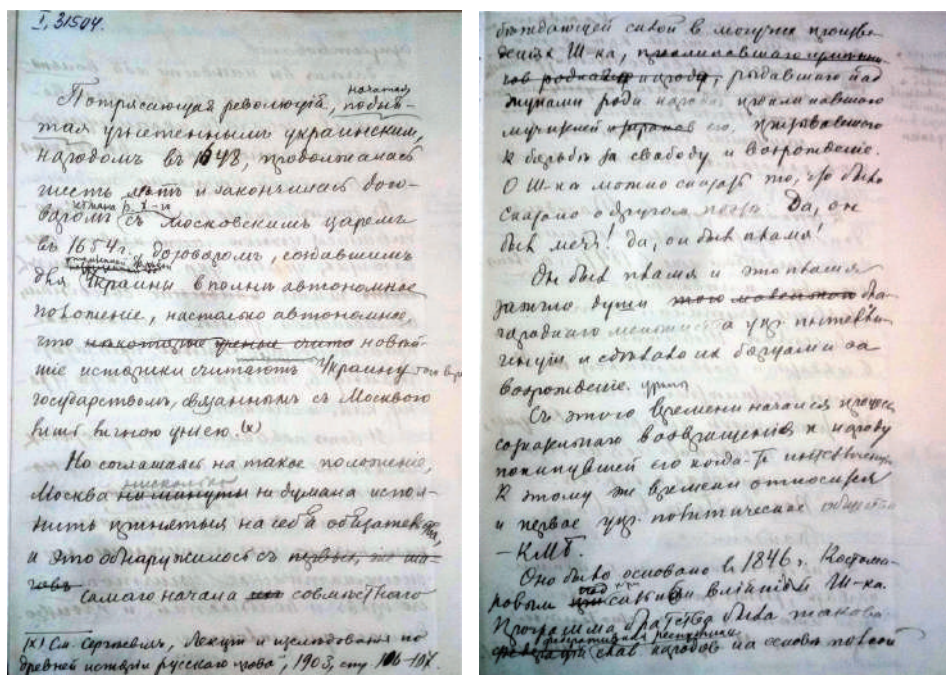 I, 31504.
начатая
Потрясающая революція, подня-
тая угнетеннымъ украинскимъ
народомъ въ 1648, продолжалась
шесть лѣтъ и закончилась дого-
воромъ съ Московскимъ царемъ
въ 1654 г. договоромъ, создавшимъ
для Украины вполнѣ автономное
положеніе, настолько автономное,
что некоторые ученые счита новѣй-
шіе историки считаютъ Украину того вре
государствомъ, связаннымъ съ Москвою
лишь личною уніею. (х)
Но соглашаясь на такое положеніе,
нисколько
Москва ни минуты не думала испол-
нить принятыя на себя обязательства,
и это обнаружилось съ первых же ша-
говъ
самаго начала совмѣстнаго
(х) См. Сергѣевичъ, Лекціи и изслѣдованія по
древней исторіи русскаго права, 1903, стр. 106-107.
бѣждающей силой в могучих произве-
деніях Ш-ка, рыдавшаго над
муками народа, проклинавшаго
мучителей его, призывавшаго
к борьбѣ за свободу и возрожденіе.
О Ш-ка можно сказать то, что было
сказано о другом поэтѣ. Да, он
был меч! да, он был пламя!
Он был пламя и это пламя
зажгло души бла-
городнаго меньшинства укр. интелли-
генціи и сделало их борцами за
возрожденіе.
Съ этого времени начался процесс
соціальнаго возвращенія к народу
покинувшей его когда-то интеллигенціи
К этому же времени относится
и первое укр. политическое общество
— КМБ.
Оно было основано в 1846 г. Костома-
ровым под сильным вліяніем Ш-ка.
Программа братства была такова:
федеративная республика
слав. народов на основѣ полной